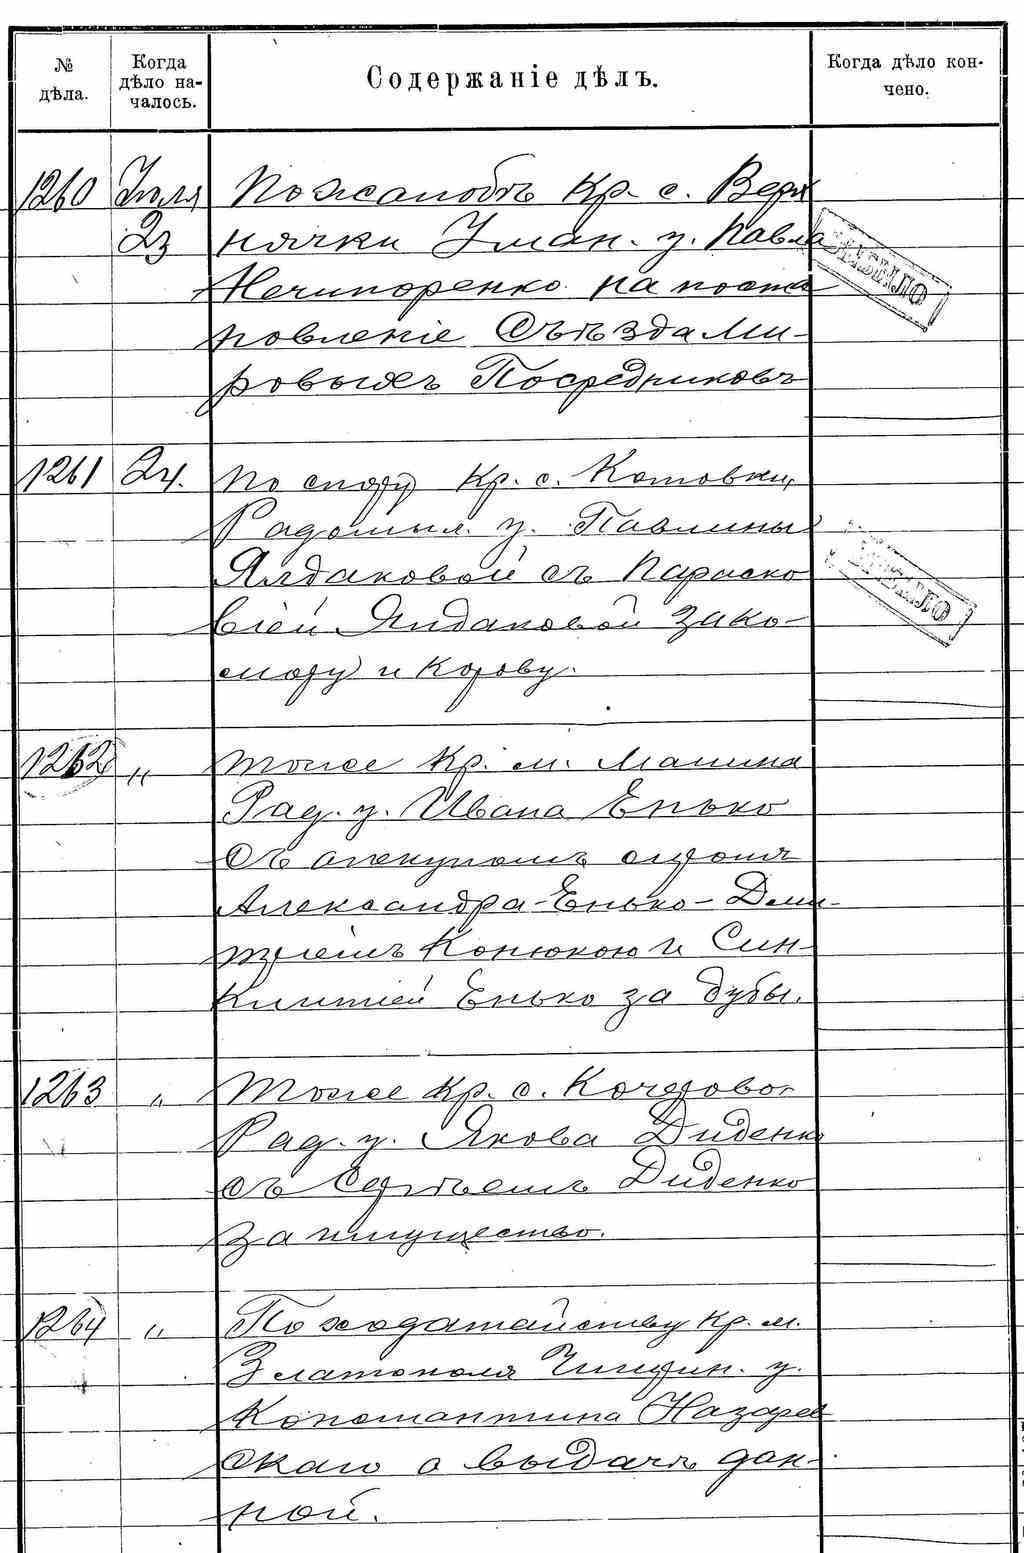 № дѣла.
Когда дѣло на-
чалось.
Содержаніе дѣлъ.
Когда дѣло кон-
чено.
1260 Іюля По жалобѣ Кр. с. Верх
23 нячки Уман. у. Павла
Нечипоренко на поста
новленіе Съѣзда Ми-
ровыхъ Посредниковъ
ВЫБЫЛО
1261 24. По спору Кр. с. Котовки
Радомыл. у. Павлины
Ялдаковой съ Параско
віей Ялдаковой за ко-
мору и корову.
ВЫБЫЛО
1262 „ тоже Кр. м. Малина
Рад. у. Ивана Енько
съ опекуномъ сироты
Александра Енько - Дми-
тріемъ Конюкою и Син-
клитіей Енько за дубы.
1263 „ тоже Кр. с. Кочерово
Рад. у. Якова Диденко
съ Сергѣемъ Диденко
за имущество.
1264 „ По ходатайству Кр. м.
Златополя Чигирин. у.
Константина Назарев
скаго о выдачѣ дан-
ной.